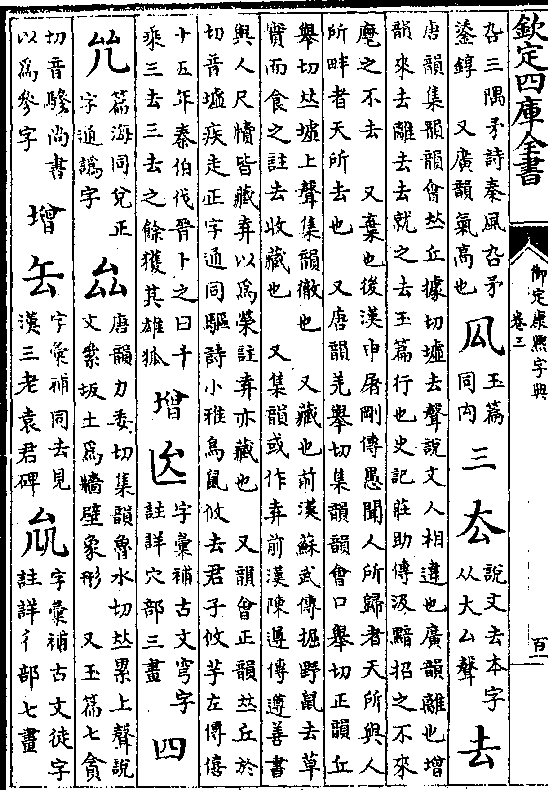 欽定四庫全書
御定康熙字典
卷三
百
厹三隅矛詩秦風厹矛
鋈錞　又廣韻氣高也
玉篇
同禸
三
厺
說文去本字
从大厶聲
去
唐韻集韻韻會𠀤丘據切墟去聲說文人相違也廣韻離也增
韻來去離去去就之去玉篇行也史記莊助傳汲黯招之不來
麾之不去　又棄也後漢申屠剛傳愚聞人所歸者天所與人
所畔者天所去也　又唐韻羌舉切集韻韻會口舉切正韻丘
舉切𠀤墟上聲集韻徹也　又藏也前漢蘇武傳掘野鼠去草
實而食之註去收藏也　又集韻或作弆前漢陳遵傳遵善書
與人尺牘皆藏弆以爲榮註弆亦藏也　又韻會正韻𠀤丘於
切音墟疾走正字通同驅詩小雅鳥鼠攸去君子攸芋左傳僖
十五年秦伯伐晉卜之曰千
乘三去三去之餘獲其雄狐
增
字彙補古文穹字
註詳穴部三畫
四
篇海同兌正
字通譌字
厽
唐韻力委切集韻魯水切𠀤累上聲說
文絫坂土爲牆壁象形　又玉篇七貪
切音驂尚書
以爲參字
增
字彙補同去見
漢三老袁君碑
字彙補古文徒字
註詳彳部七畫